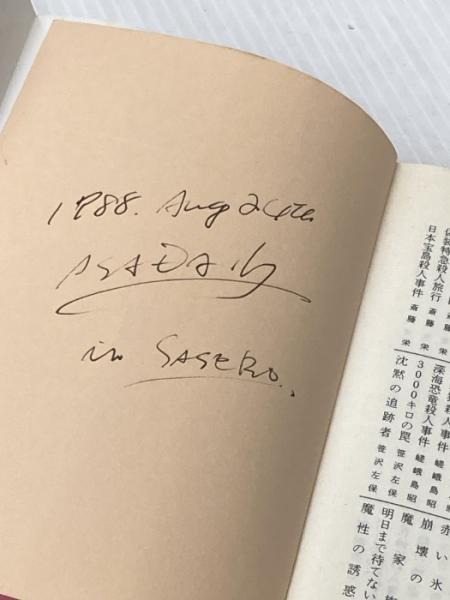 1988. Aug 24th
in SASEBO.
特急殺人旅行 斎藤 栄
日本宝島殺人事件 斎藤 栄
深海恐竜殺人事件 嵯峨島昭
3000キロの罠 笹沢左保
沈黙の追跡者 笹沢左保
赤い氷
崩壊の
魔家族
明日まで待てない
魔性の誘惑